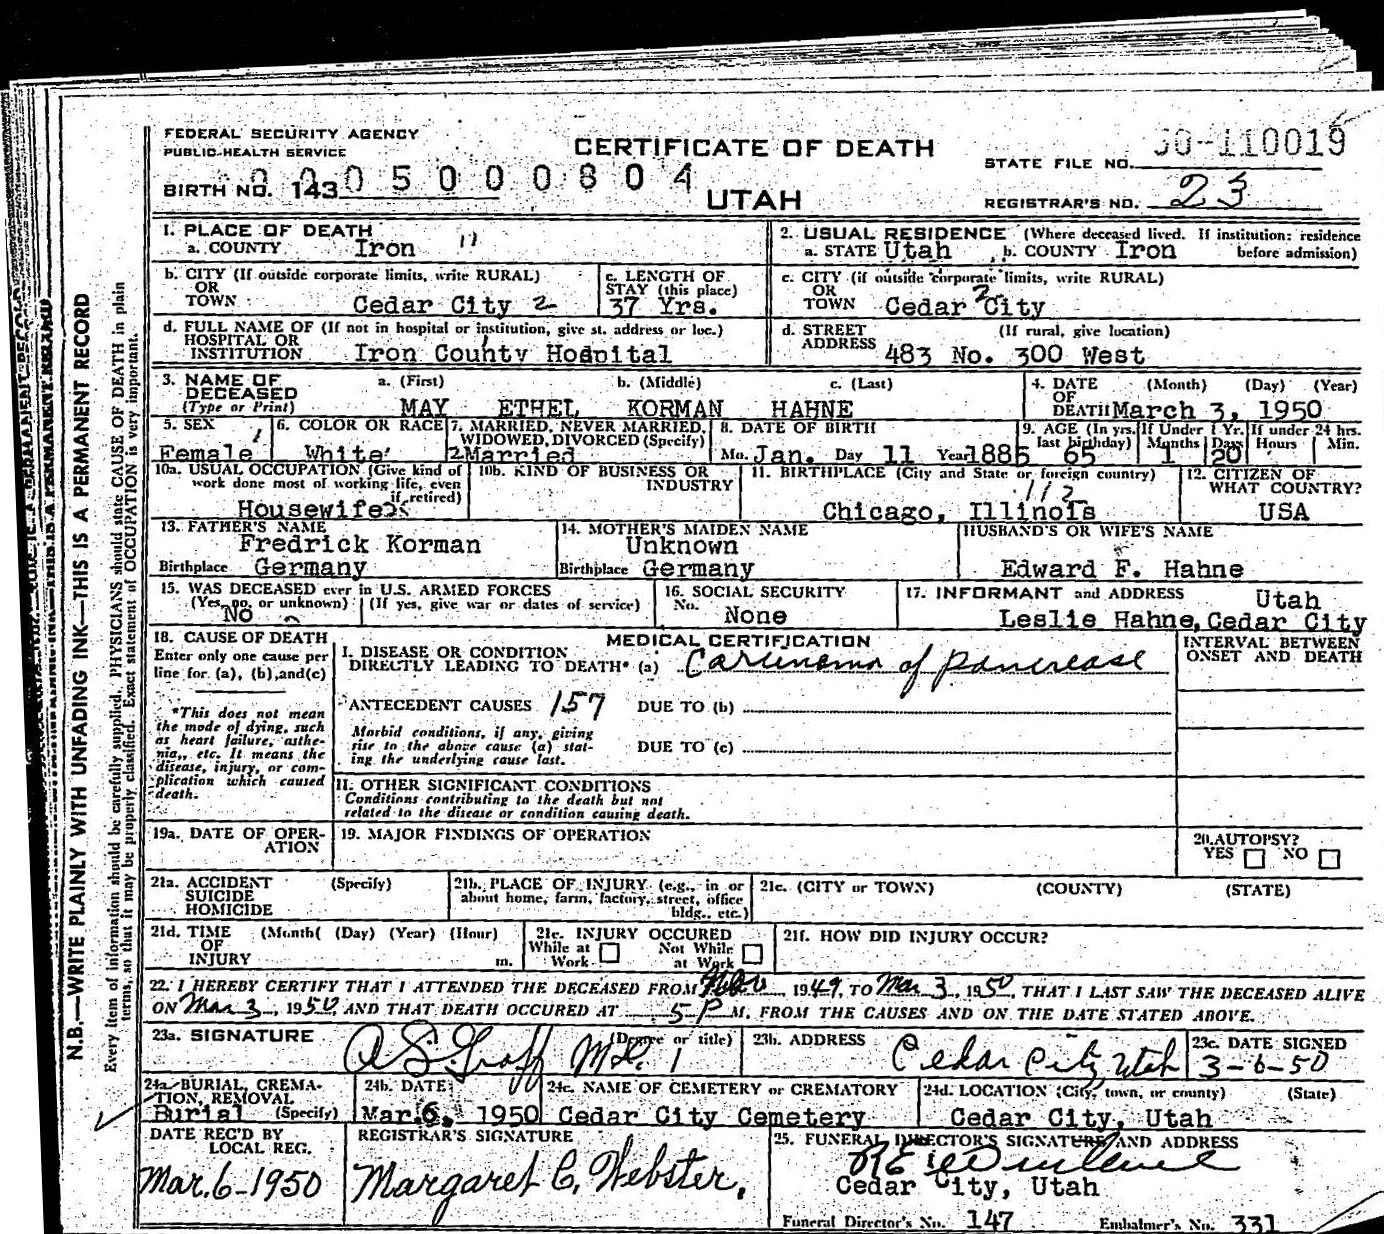 FEDERAL SECURITY AGENCY
PUBLIC HEALTH SERVICE
CERTIFICATE OF DEATH
UTAH
BIRTH NO. 143 0 5 0 0 0 0 8 0 4
STATE FILE NO. 50-110019
REGISTRAR'S NO. 23
1. PLACE OF DEATH
a. COUNTY Iron 11
2. USUAL RESIDENCE (Where deceased lived. If institution: residence before admission)
a. STATE Utah b. COUNTY Iron
b. CITY (If outside corporate limits, write RURAL)
OR
TOWN Cedar City 2
c. LENGTH OF STAY (this place)
37 Yrs.
c. CITY (if outside corporate limits, write RURAL)
OR
TOWN Cedar City 2
d. FULL NAME OF (If not in hospital or institution, give st. address or loc.)
HOSPITAL OR
INSTITUTION Iron County Hospital
d. STREET ADDRESS (If rural, give location)
483 No. 300 West
3. NAME OF DECEASED
(Type or Print)
a. (First) b. (Middle) c. (Last)
MAY ETHEL KORMAN HAHNE
4. DATE OF DEATH (Month) (Day) (Year)
March 3, 1950
5. SEX
Female 1
6. COLOR OR RACE
White
7. MARRIED, NEVER MARRIED, WIDOWED, DIVORCED (Specify)
2 Married
8. DATE OF BIRTH
Mo. Jan. Day 11 Year 1885
9. AGE (In yrs. last birthday) 65
If Under 1 Yr. Months 1 Days 20
If under 24 hrs. Hours Min.
10a. USUAL OCCUPATION (Give kind of work done most of working life, even if retired)
Housewife
10b. KIND OF BUSINESS OR INDUSTRY
11. BIRTHPLACE (City and State or foreign country)
Chicago, Illinois
12. CITIZEN OF WHAT COUNTRY?
USA
13. FATHER'S NAME
Fredrick Korman
Birthplace Germany
14. MOTHER'S MAIDEN NAME
Unknown
Birthplace Germany
HUSBAND'S OR WIFE'S NAME
Edward F. Hahne
15. WAS DECEASED ever in U.S. ARMED FORCES
(Yes, no, or unknown) (If yes, give war or dates of service)
No
16. SOCIAL SECURITY
No. None
17. INFORMANT and ADDRESS
Leslie Hahne, Cedar City Utah
18. CAUSE OF DEATH
Enter only one cause per line for (a), (b), and (c)
*This does not mean the mode of dying, such as heart failure, asthenia, etc. It means the disease, injury, or complication which caused death.
MEDICAL CERTIFICATION
I. DISEASE OR CONDITION
DIRECTLY LEADING TO DEATH* (a) Carcinoma of pancrease
ANTECEDENT CAUSES 157 DUE TO (b)
Morbid conditions, if any, giving rise to the above cause (a) stating the underlying cause last.
DUE TO (c)
II. OTHER SIGNIFICANT CONDITIONS
Conditions contributing to the death but not related to the disease or condition causing death.
INTERVAL BETWEEN ONSET AND DEATH
19a. DATE OF OPERATION
19. MAJOR FINDINGS OF OPERATION
20. AUTOPSY?
YES NO
21a. ACCIDENT (Specify)
SUICIDE
HOMICIDE
21b. PLACE OF INJURY (e.g., in or about home, farm, factory, street, office bldg., etc.)
21c. (CITY or TOWN) (COUNTY) (STATE)
21d. TIME (Month( (Day) (Year) (Hour)
OF
INJURY m.
21e. INJURY OCCURED
While at Work Not While at Work
21f. HOW DID INJURY OCCUR?
22. I HEREBY CERTIFY THAT I ATTENDED THE DECEASED FROM 1949, TO Mar 3, 1950, THAT I LAST SAW THE DECEASED ALIVE
ON Mar 3, 1950 AND THAT DEATH OCCURED AT 5 P M, FROM THE CAUSES AND ON THE DATE STATED ABOVE.
23a. SIGNATURE (Degree or title)
M.D. 1
23b. ADDRESS
Cedar City, Utah
23c. DATE SIGNED
3-6-50
24a. BURIAL, CREMATION, REMOVAL
Burial (Specify)
24b. DATE
Mar. 6, 1950
24c. NAME OF CEMETERY or CREMATORY
Cedar City Cemetery
24d. LOCATION (City, town, or county) (State)
Cedar City, Utah
DATE REC'D BY LOCAL REG.
Mar. 6-1950
REGISTRAR'S SIGNATURE
Margaret C. Webster.
25. FUNERAL DIRECTOR'S SIGNATURE AND ADDRESS
Cedar City, Utah
Funeral Director's No. 147 Embalmer's No. 331
N.B.—WRITE PLAINLY WITH UNFADING INK—THIS IS A PERMANENT RECORD
Every item of information should be carefully supplied. PHYSICIANS should state CAUSE OF DEATH in plain
terms, so that it may be properly classified. Exact statement of OCCUPATION is very important.